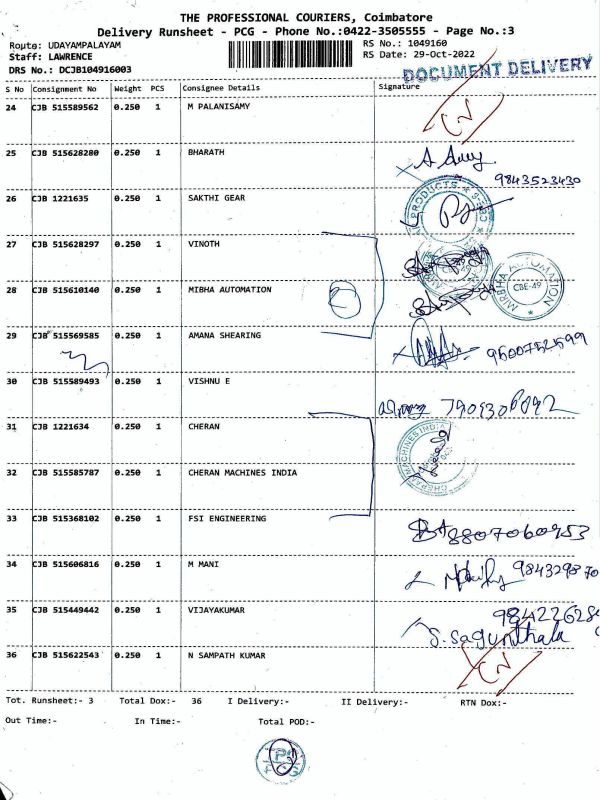 THE PROFESSIONAL COURIERS, Coimbatore
Delivery Runsheet - PCG - Phone No.:0422-3505555 - Page No.:3
Route: UDAYAMPALAYAM RS No.: 1049160
Staff: LAWRENCE RS Date: 29-Oct-2022
DRS No.: DCJB104916003 DOCUMENT DELIVERY
S No Consignment No Weight PCS Consignee Details Signature
24 CJB 515589562 0.250 1 M PALANISAMY
25 CJB 515628280 0.250 1 BHARATH
9843523430
26 CJB 1221635 0.250 1 SAKTHI GEAR
PRODUCTS
27 CJB 515628297 0.250 1 VINOTH
28 CJB 515610140 0.250 1 MIBHA AUTOMATION
MIRBHA AUTOMATION CBE-49
29 CJB 515569585 0.250 1 AMANA SHEARING
9600752599
30 CJB 515589493 0.250 1 VISHNU E
31 CJB 1221634 0.250 1 CHERAN
CHERAN MACHINES INDIA
32 CJB 515585787 0.250 1 CHERAN MACHINES INDIA
33 CJB 515368102 0.250 1 FSI ENGINEERING
8807060953
34 CJB 515606816 0.250 1 M MANI
984329870
35 CJB 515449442 0.250 1 VIJAYAKUMAR
984226284
S. Sagunthala
36 CJB 515622543 0.250 1 N SAMPATH KUMAR
Tot. Runsheet:- 3 Total Dox:- 36 I Delivery:- II Delivery:- RTN Dox:-
Out Time:- In Time:- Total POD:-